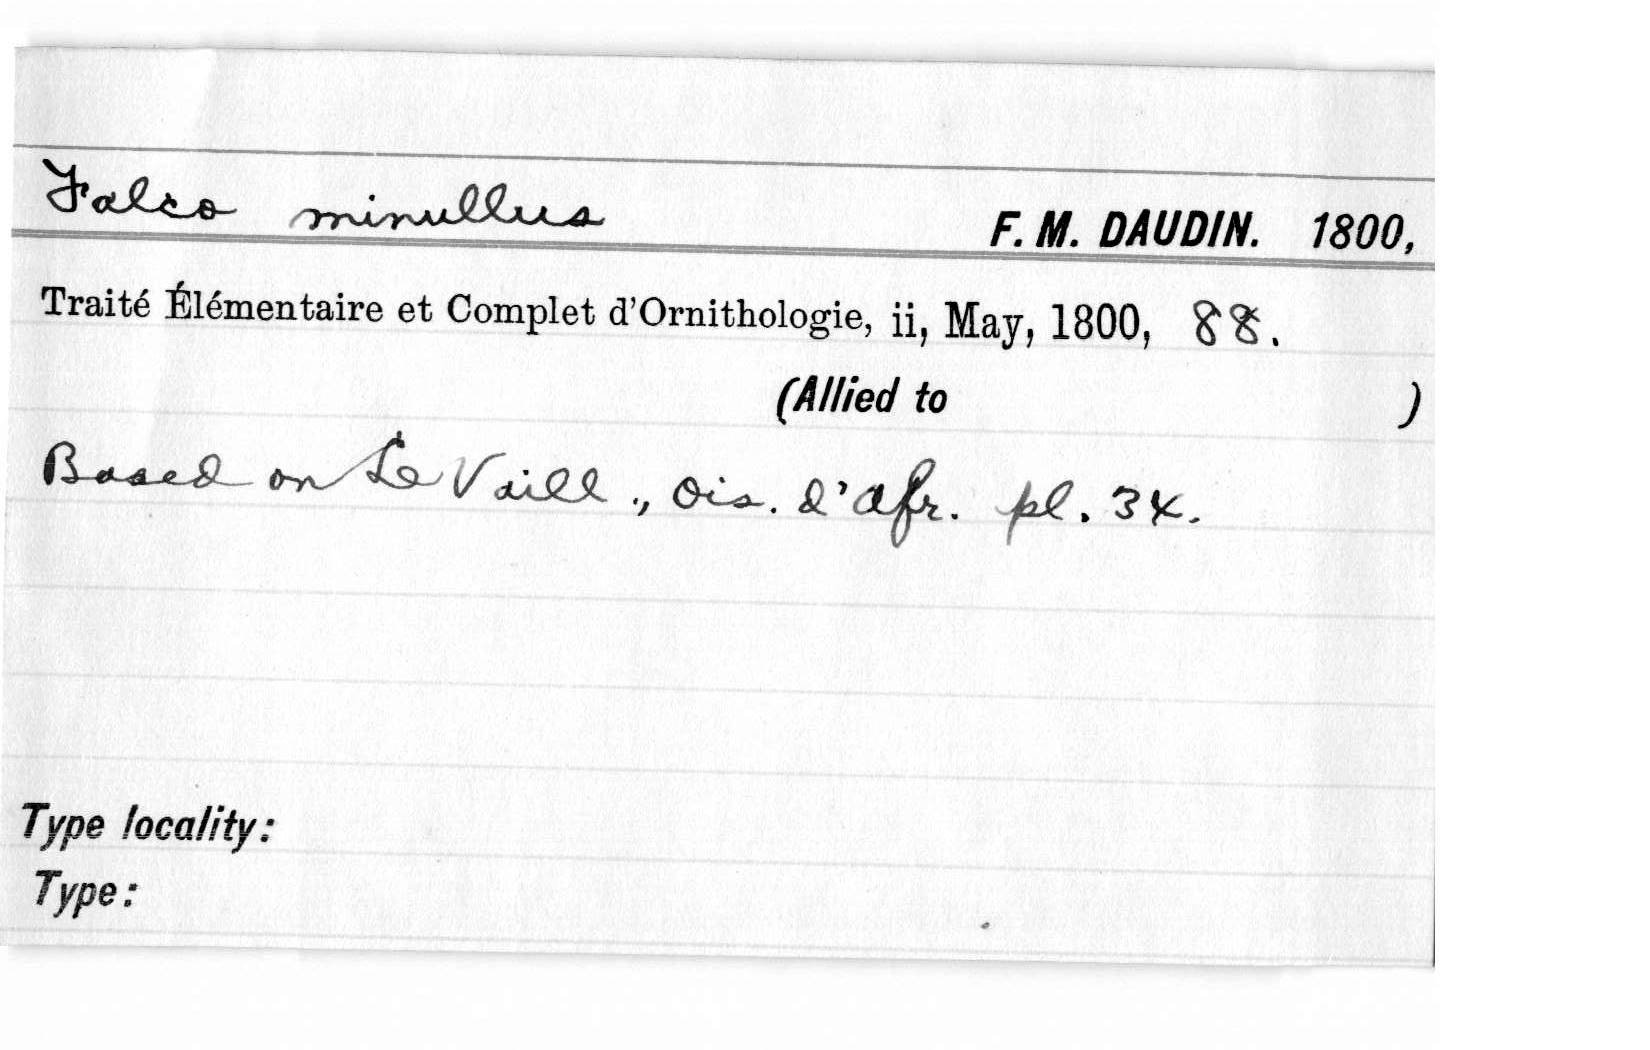 Falco minullus F. M. DAUDIN. 1800,
Traité Élémentaire et Complet d'Ornithologie, ii, May, 1800, 88.
(Allied to )
Based on Le Vaill., Ois. d'Afr. pl. 34.
Type locality:
Type: